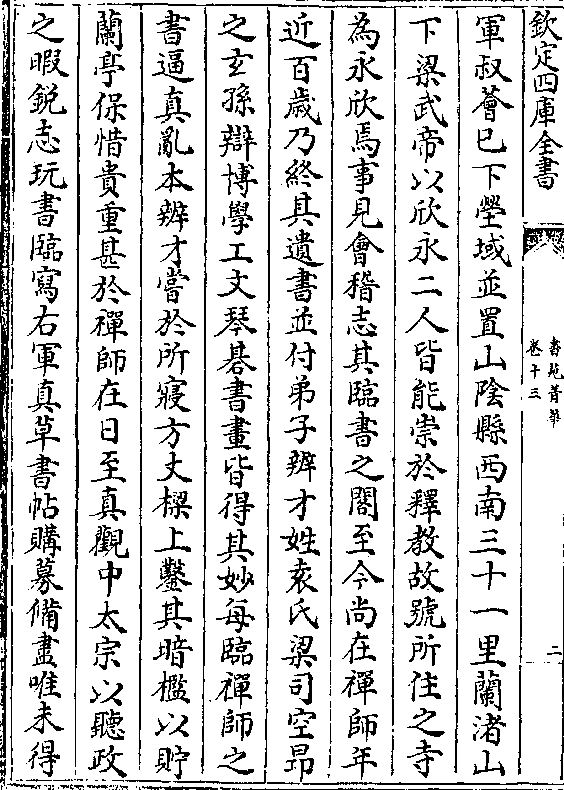 欽定四庫全書
書苑菁華
卷十三
二
軍叔薈已下塋域並置山陰縣西南三十一里蘭渚山
下梁武帝以欣永二人皆能崇於釋教故號所住之寺
為永欣焉事見會稽志其臨書之閣至今尚在禪師年
近百歲乃終其遺書並付弟子辨才姓袁氏梁司空昂
之玄孫辯博學工文琴碁書畫皆得其妙每臨禪師之
書逼真亂本辨才嘗於所寢方丈樑上鑿其暗檻以貯
蘭亭保惜貴重甚於禪師在日至真觀中太宗以聽政
之暇銳志玩書臨寫右軍真草書帖購募備盡唯未得